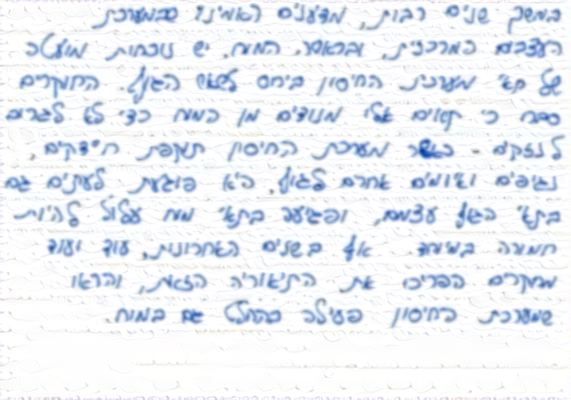 במשך שנים רבות, מדענים האמינו שבמערכת
העצבים המרכזית, ובראשה המוח, יש נוכחות מועטה
של תאי מערכת החיסון ביחס לשאר הגוף. החוקרים
סברו כי תאים אלו מנודים מן המוח כדי לא לגרום
לנזקים - כאשר מערכת החיסון תוקפת חיידקים,
נגיפים ואיומים אחרים לגוף, היא פוגעת לעיתים גם
בתאי הגוף עצמם, ופגיעה בתאי מוח עלולה להיות
חמורה במיוחד. אך בשנים האחרונות, עוד ועוד
מחקרים הפריכו את התיאוריה הזאת, והראו
שמערכת החיסון פעילה בהחלט גם במוח.